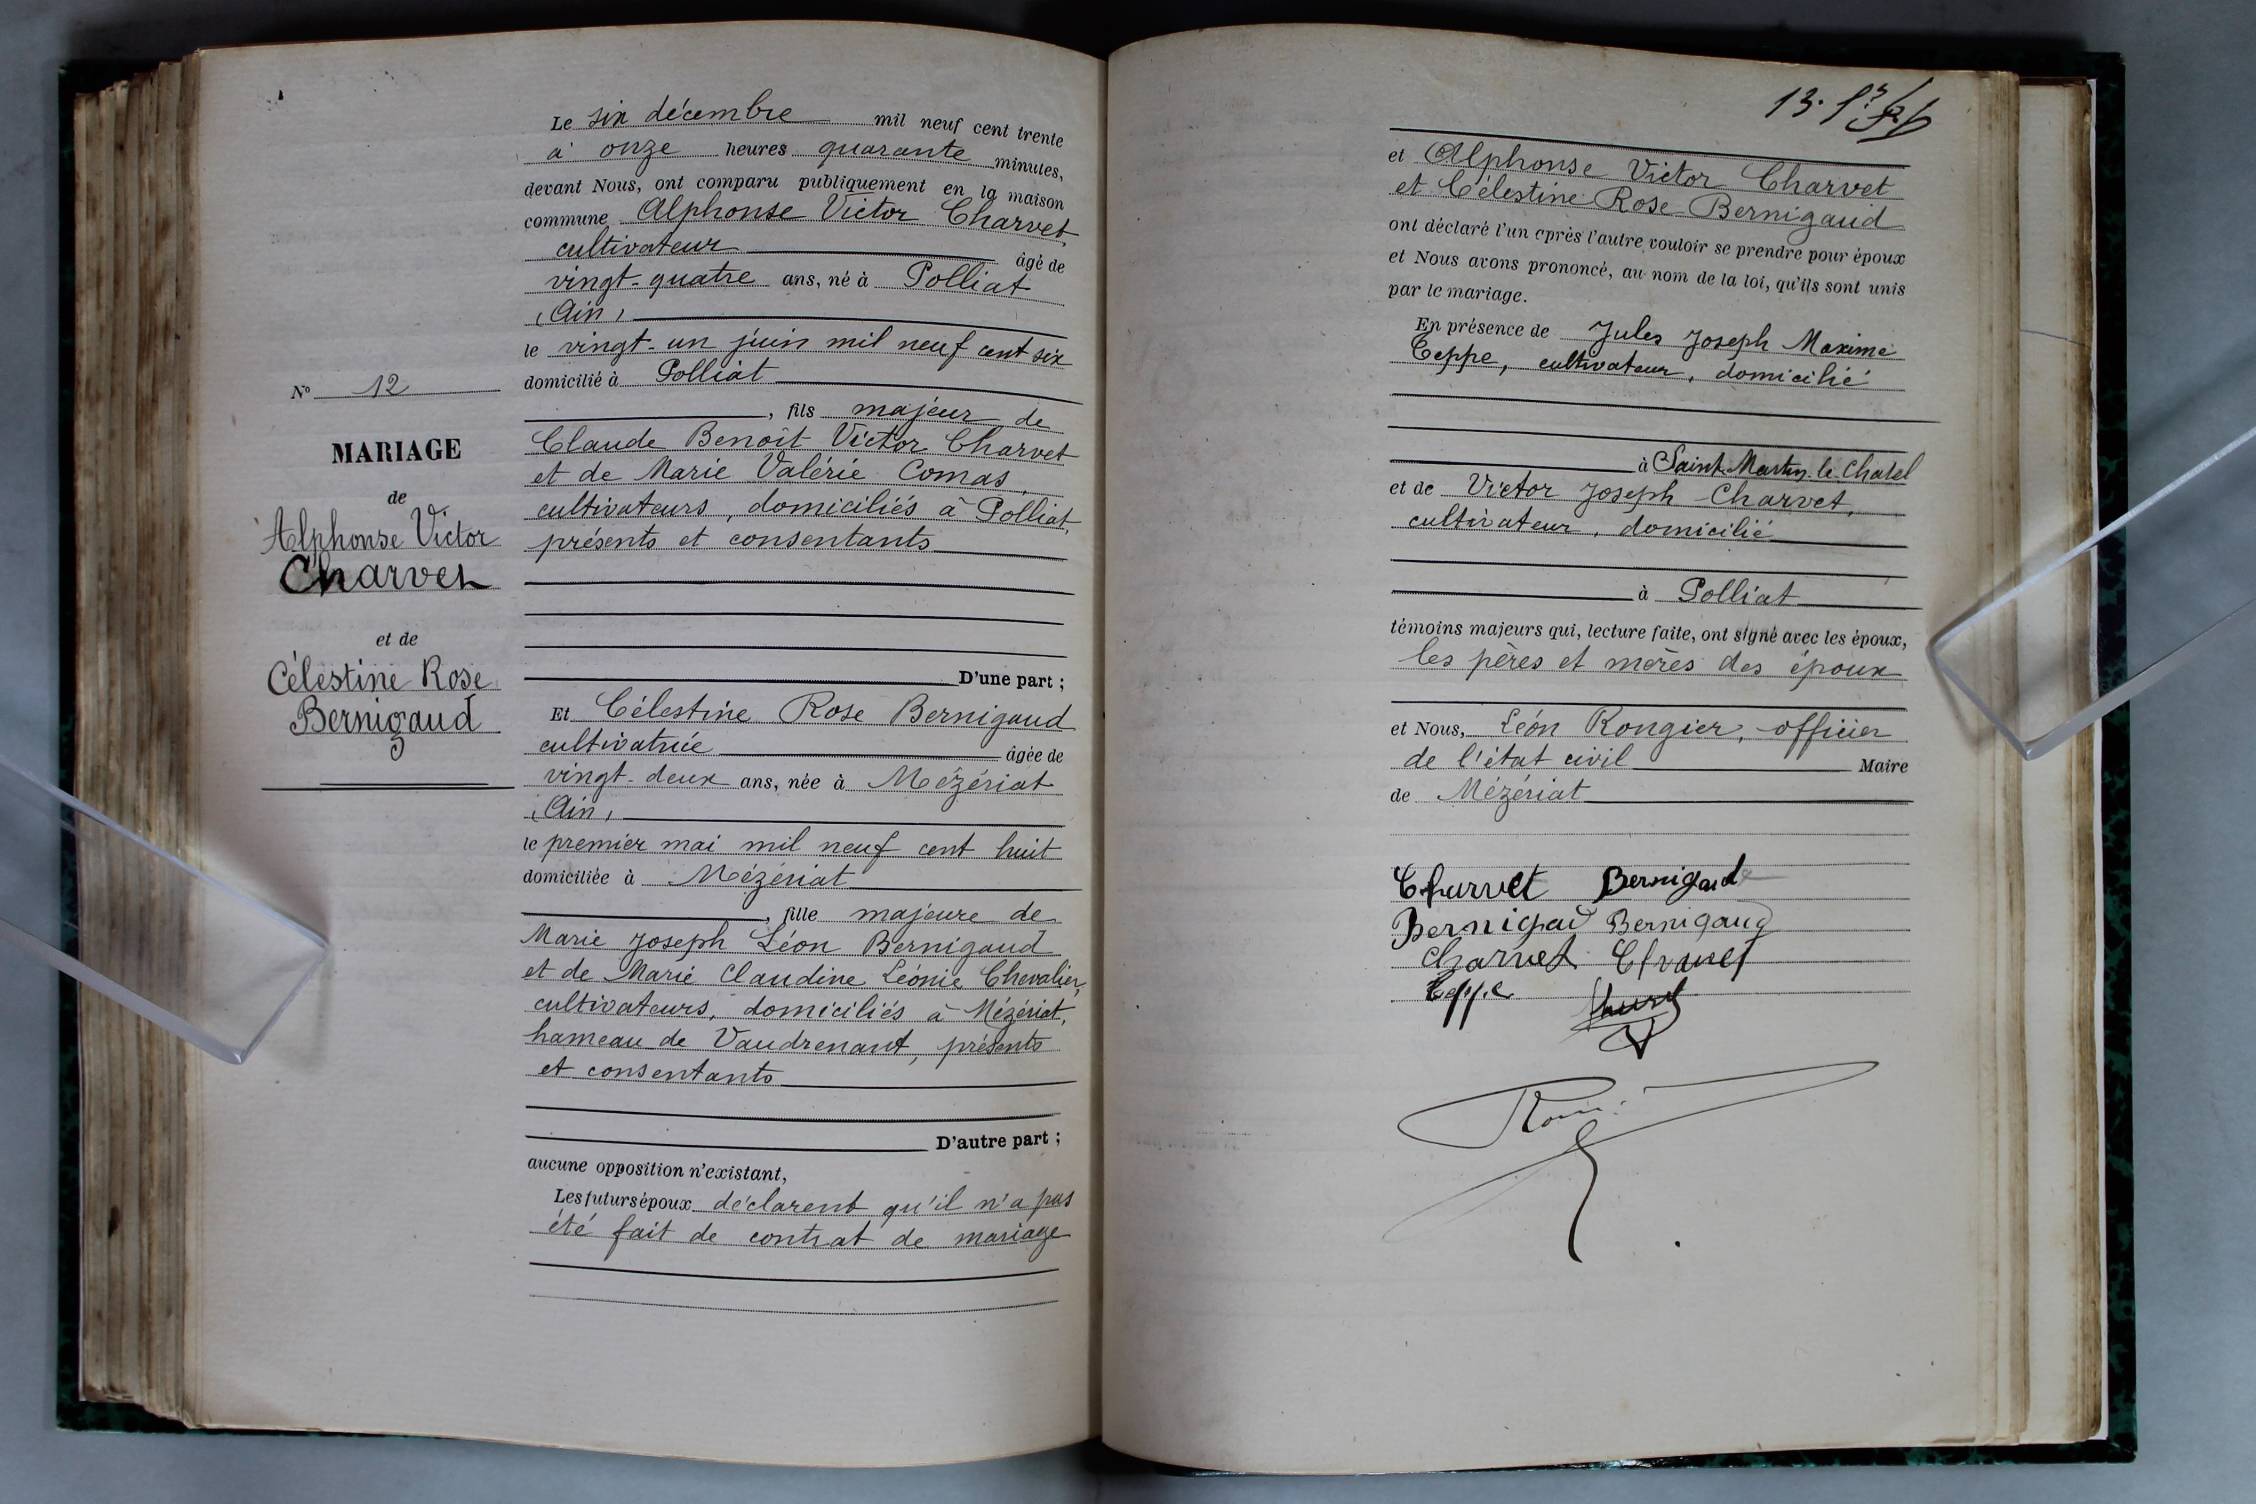 Le six décembre mil neuf cent trente
à onze heures quarante minutes,
devant Nous, ont comparu publiquement en la maison
commune Alphonse Victor Charvet,
cultivateur âgé de
vingt-quatre ans, né à Polliat
(Ain)
le vingt-un juin mil neuf cent six
domicilié à Polliat
, fils majeur de
Claude Benoît Victor Charvet
et de Marie Valérie Comas,
cultivateurs, domiciliés à Polliat,
présents et consentants
D'une part ;
Et Célestine Rose Bernigaud
cultivatrice âgée de
vingt-deux ans, née à Mézériat
(Ain)
le premier mai mil neuf cent huit
domiciliée à Mézériat
, fille majeure de
Marie Joseph Léon Bernigaud
et de Marie Claudine Léonie Chevalier,
cultivateurs, domiciliés à Mézériat,
hameau de Vaudrenant, présents
et consentants
D'autre part ;
aucune opposition n'existant,
Les futurs époux déclarent qu'il n'a pas
été fait de contrat de mariage
N° 12
MARIAGE
de
Alphonse Victor
Charvet
et de
Célestine Rose
Bernigaud
13.
et Alphonse Victor Charvet
et Célestine Rose Bernigaud
ont déclaré l'un après l'autre vouloir se prendre pour époux
et Nous avons prononcé, au nom de la loi, qu'ils sont unis
par le mariage.
En présence de Jules Joseph Maxime
Teppe, cultivateur, domicilié
à Saint-Martin-le-Chatel
et de Victor Joseph Charvet,
cultivateur, domicilié
à Polliat
témoins majeurs qui, lecture faite, ont signé avec les époux,
les pères et mères des époux
et Nous, Léon Rongier, officier
de l'état civil Maire
de Mézériat
Charvet Bernigaud
Bernigaud Bernigaud
Charvet Charvet
Teppe